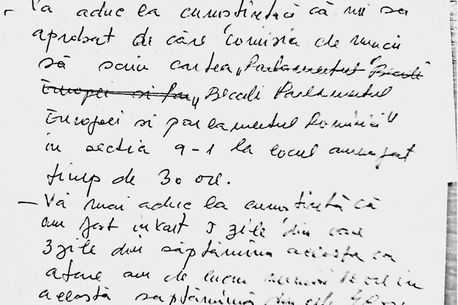 - Vă aduc la cunostintă că mi sa
aprobat di căre Comisia de muncă
să scriu cartea „Parlamentul Becali
Europei si Pa„ Becali Parlamentul
Europei si parlamentul României"
in sectia 9-1 la locul
timp de 30 ore.
- Vă mai aduc la cunostintă că
am fost invoit 5 zile din care
3 zile din săptămîna aceasta ca
atare am de lucru numai 16 ore in
această saptămînă din cele